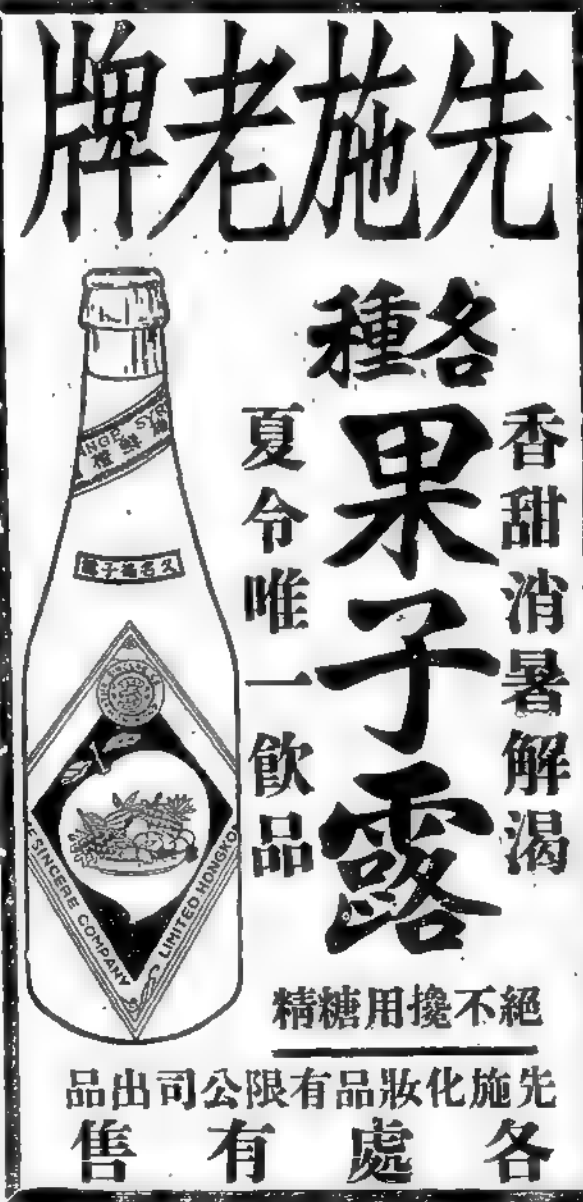 先施老牌
各種
果子露
香甜消暑解渴
夏令唯一飲品
絕不攙用糖精
先施化妝品有限公司出品
各處有售
SINCERE COMPANY
LIMITED HONGKO